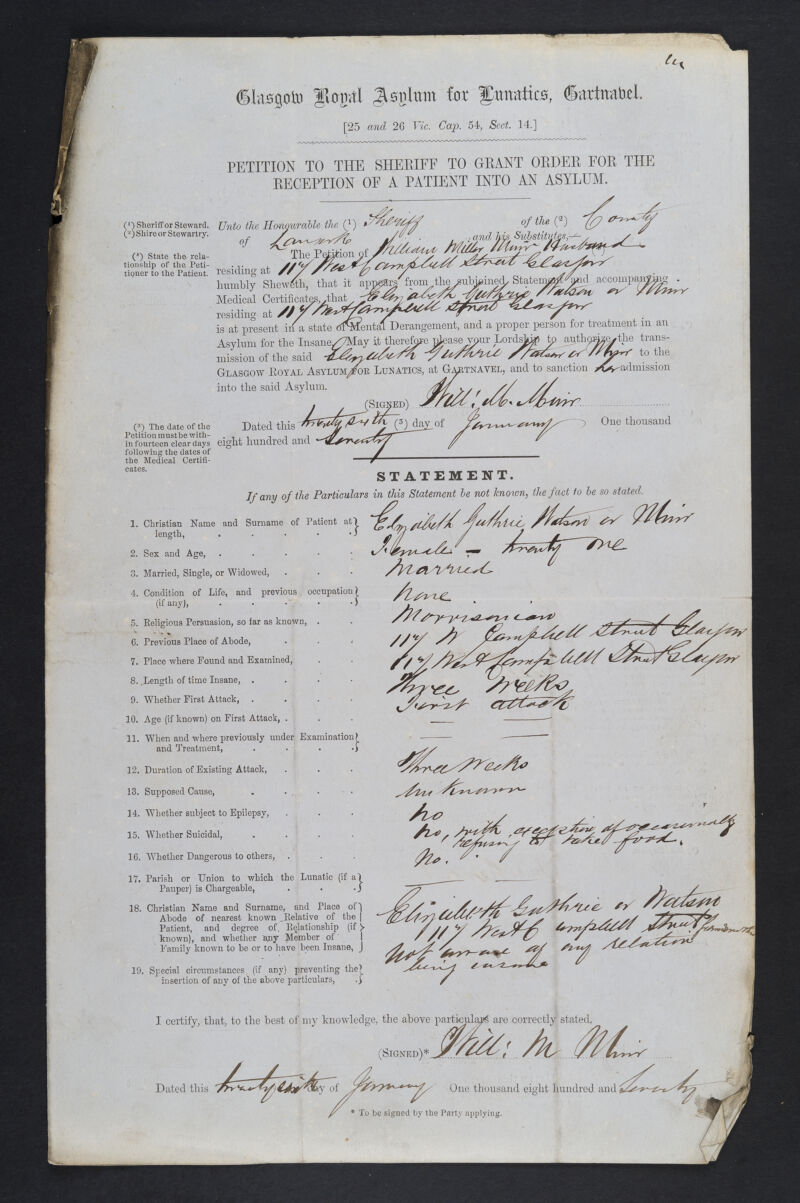 Glasgow Royal Asylum for Lunatics, Gartnavel.
[25 and 26 Vic. Cap. 54, Sect. 14.]
PETITION TO THE SHERIFF TO GRANT ORDER FOR THE
RECEPTION OF A PATIENT INTO AN ASYLUM.
(¹) Sheriff or Steward.
(²) Shire or Stewartry.
(⁴) State the rela-
tionship of the Peti-
tioner to the Patient.
Unto the Honourable the (¹) Sheriff of the (²) County
of Lanark and his Substitutes,
The Petition of William Miller Muir Husband
residing at 117 West Campbell Street Glasgow
humbly Sheweth, that it appears from the subjoined Statement and accompanying
Medical Certificates, that Elizabeth Guthrie Watson or Muir
residing at 117 West Campbell Street Glasgow
is at present in a state of Mental Derangement, and a proper person for treatment in an
Asylum for the Insane. May it therefore please your Lordship to authorize the trans-
mission of the said Elizabeth Guthrie Watson or Muir to the
GLASGOW ROYAL ASYLUM FOR LUNATICS, at GARTNAVEL, and to sanction her admission
into the said Asylum.
(SIGNED) Will: M. Muir
(³) The date of the
Petition must be with-
in fourteen clear days
following the dates of
the Medical Certifi-
cates.
Dated this twenty sixth (³) day of January One thousand
eight hundred and Seventy
STATEMENT.
If any of the Particulars in this Statement be not known, the fact to be so stated.
1. Christian Name and Surname of Patient at length, Elizabeth Guthrie Watson or Muir
2. Sex and Age, Female - twenty one
3. Married, Single, or Widowed, Married
4. Condition of Life, and previous occupation (if any), None
5. Religious Persuasion, so far as known, Morrisonian
6. Previous Place of Abode, 117 W Campbell Street Glasgow
7. Place where Found and Examined, 117 West Campbell Street Glasgow
8. Length of time Insane, Three Weeks
9. Whether First Attack, First attack
10. Age (if known) on First Attack, —
11. When and where previously under Examination and Treatment, —
12. Duration of Existing Attack, Three Weeks
13. Supposed Cause, Unknown
14. Whether subject to Epilepsy, No
15. Whether Suicidal, No, with exception of occasionally
refusing to take food.
16. Whether Dangerous to others, No.
17. Parish or Union to which the Lunatic (if a Pauper) is Chargeable, —
18. Christian Name and Surname, and Place of
Abode of nearest known Relative of the
Patient, and degree of Relationship (if
known), and whether any Member of
Family known to be or to have been Insane,
Elizabeth Guthrie or Watson
117 West Campbell Street Grandmother
Not aware of any relation
being insane
19. Special circumstances (if any) preventing the
insertion of any of the above particulars,
I certify, that, to the best of my knowledge, the above particulars are correctly stated.
(SIGNED)* Will: M Muir
Dated this twenty sixth day of January One thousand eight hundred and Seventy
* To be signed by the Party applying.